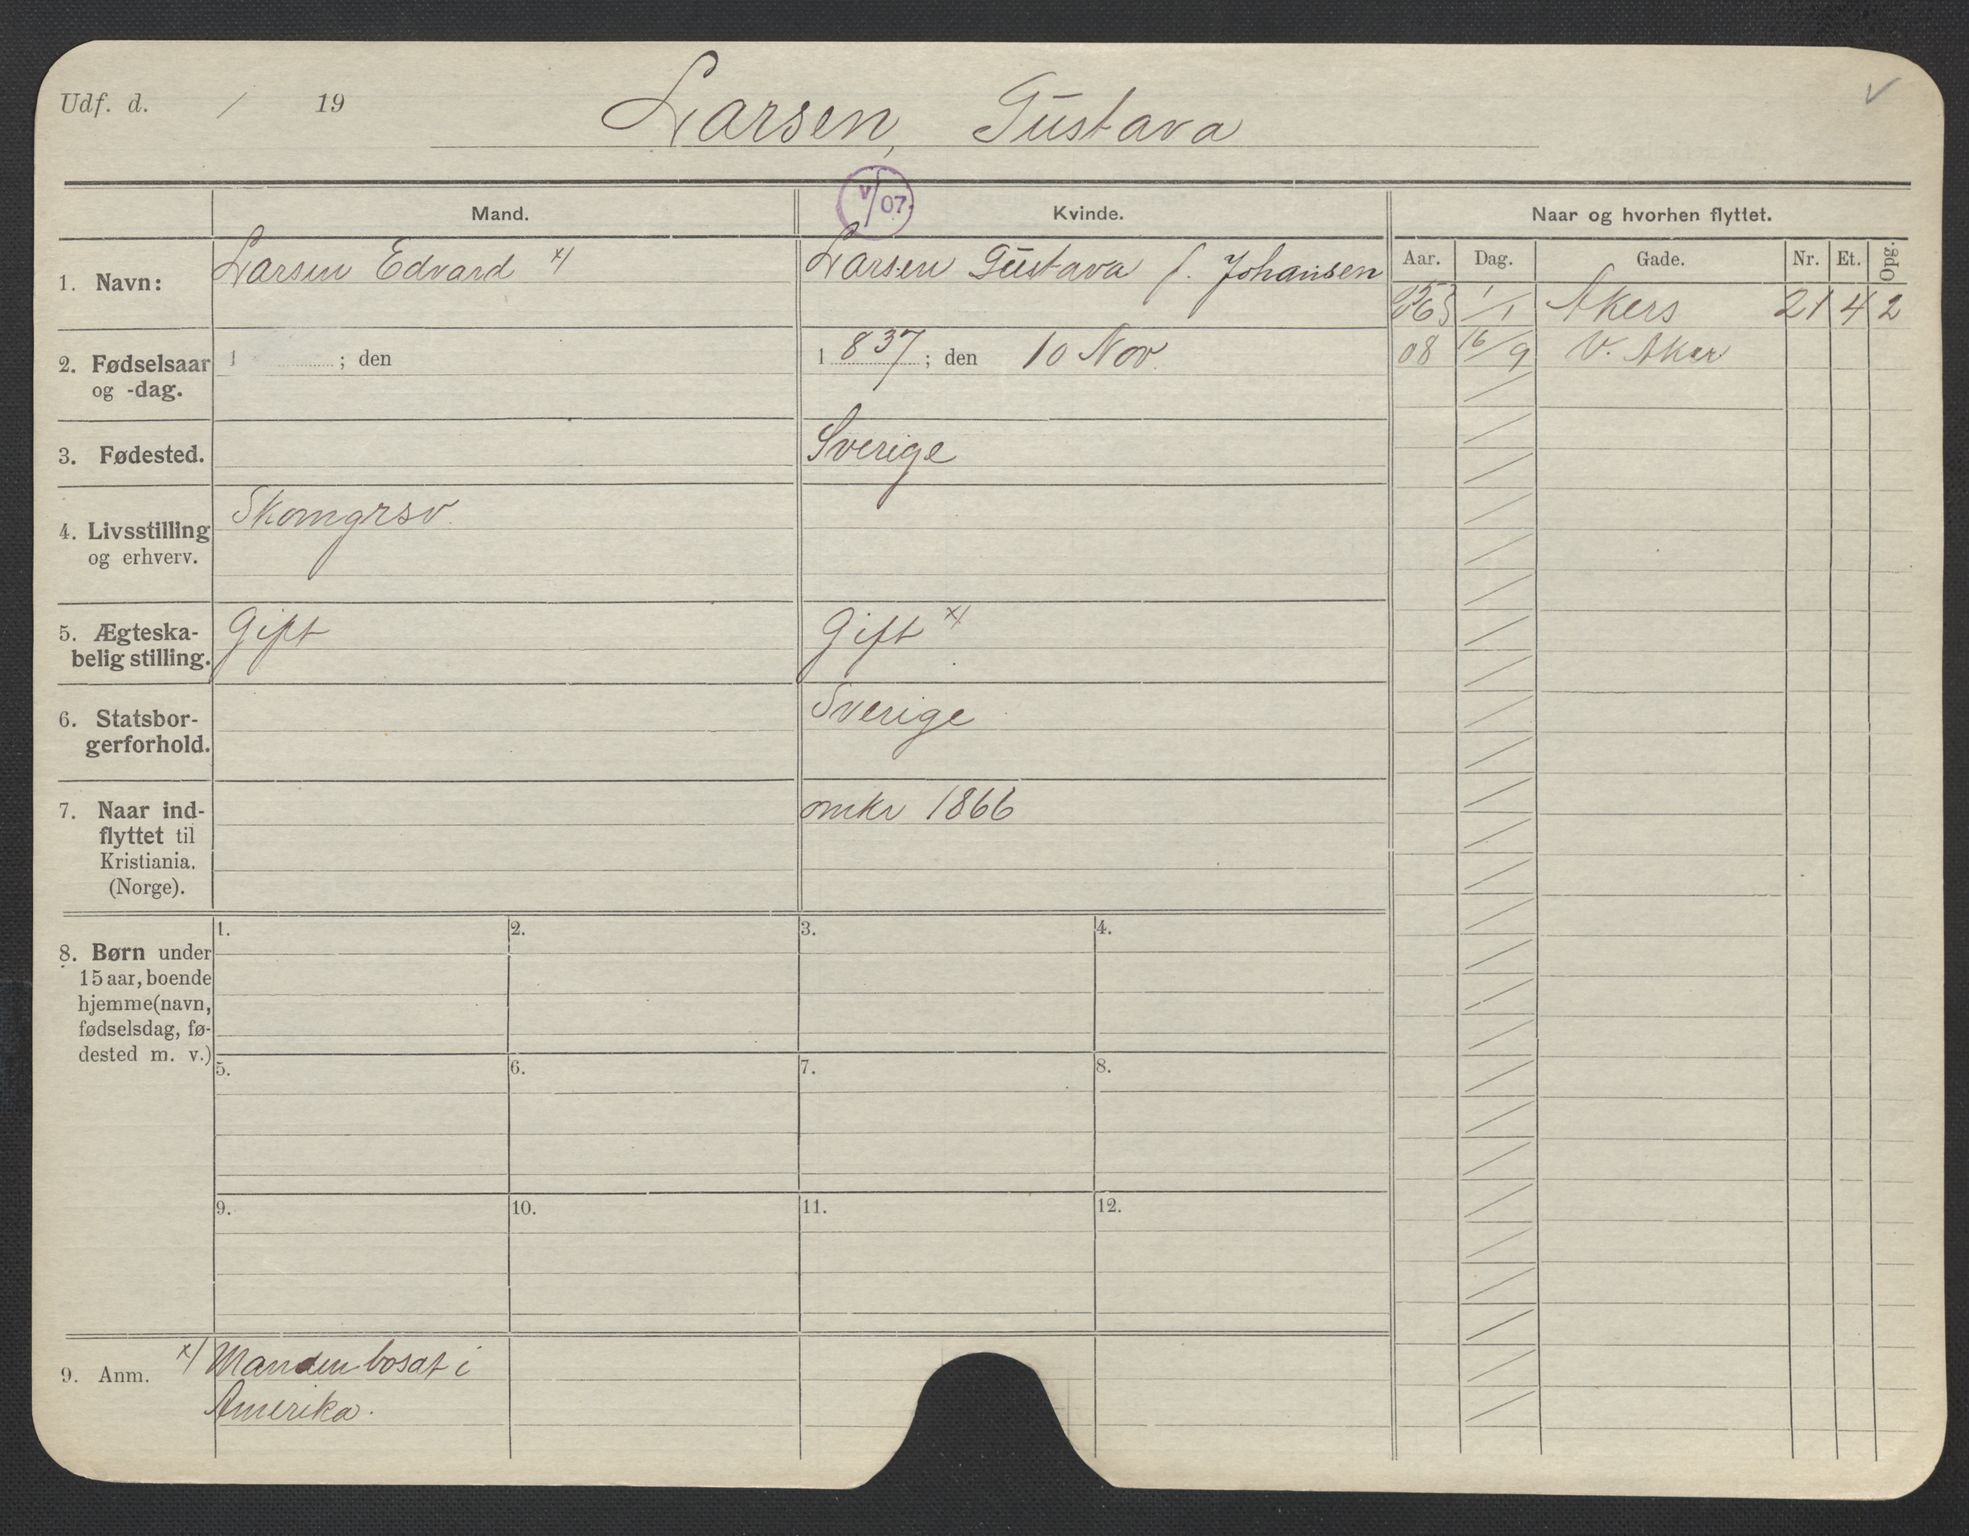 Udf. d. / 19
Larsen, Gustava
V/07.
Mand.
Kvinde.
Naar og hvorhen flyttet.
Aar. Dag. Gade. Nr. Et. Opg.
1. Navn:
Larsen Edvard x/
Larsen Gustava f. Johansen
1/1 Akers 21 4 2
08 16/9 V. Aker
2. Fødselsaar
og -dag.
1 ; den
1 837 ; den 10 Nov.
3. Fødested.
Sverige
4. Livsstilling
og erhverv.
Skomgrsv.
5. Ægteska-
belig stilling.
Gift
Gift x/
6. Statsbor-
gerforhold.
Sverige
7. Naar ind-
flyttet til
Kristiania.
(Norge).
omkr 1866
8. Børn under
15 aar, boende
hjemme (navn,
fødselsdag, fø-
dested m. v.)
1. 2. 3. 4.
5. 6. 7. 8.
9. 10. 11. 12.
9. Anm.
x/ Manden bosat i
Amerika.